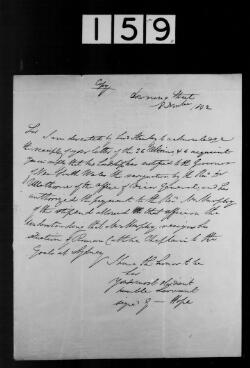 159
Copy
Downing Street
1842
Sir
I am directed by Lord Stanley to acknowledge
the receipt of your letter of the 26 Ultimo & to acquaint
you in reply that his Lordship has notified to the Governor
of New South Wales the resignation by the Revd Dr
Ullathorne of the office of Vicar General, and has
authorized the payment to the Revd Mr Murphy
of the stipend allowed to that office on the
understanding that Mr Murphy resigns his
situation of Roman Catholic Chaplain to the
Gaols at Sydney
I have the honor to be
Sir
your most obedient
humble servant
signed G Hope